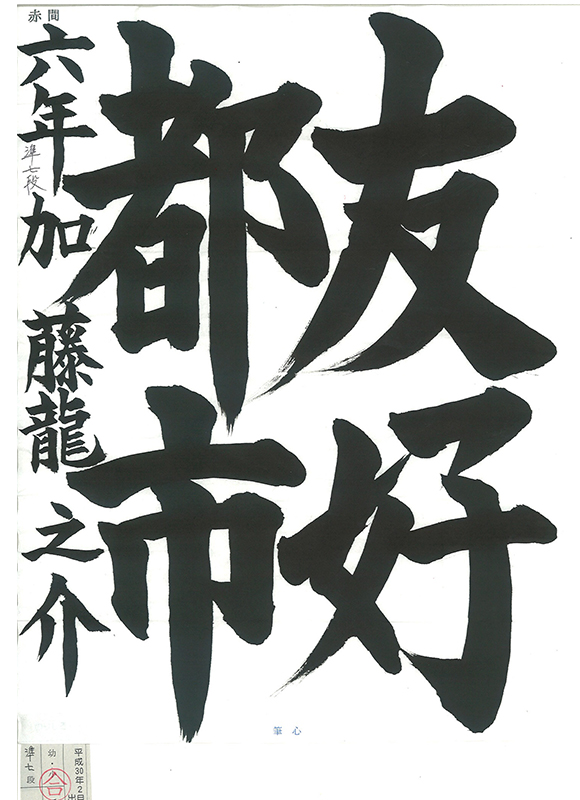 友好
都市
赤間
六年 加藤龍之介
準七段
心筆
平成30年2月
幼・
準七段
合